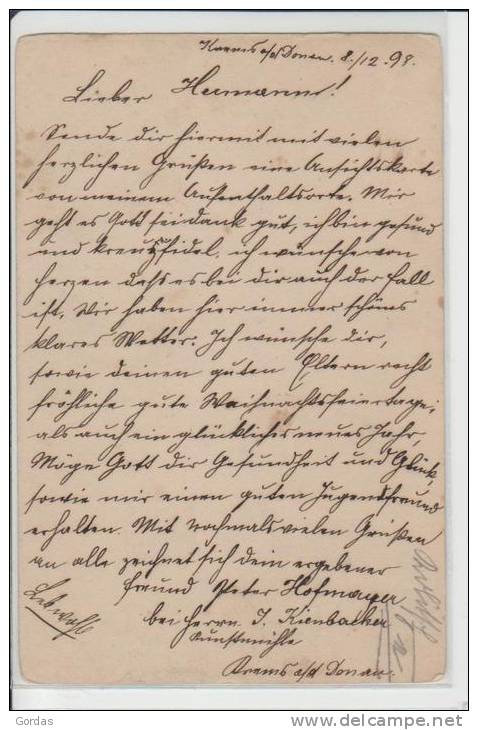 Krems a/d Donau. 8./12.98.
Lieber Hermann!
Sende dir hiermit mit vielen
herzlichen Grüßen eine Ansichtskarte
von meinem Aufenthaltsorte. Mir
geht es Gott sei dank gut, ich bin gesund
und kreuzfidel, ich wünsche von
herzen daß es bei dir auch der Fall
ist. Wir haben hier immer schönes
klares Wetter. Ich wünsche dir,
sowie deinen guten Eltern recht
fröhliche gute Weihnachtsfeiertage;
als auch ein glückliches neues Jahr,
Möge Gott dir Gesundheit und Glück,
sowie mir einen guten Jugendfreund
erhalten. Mit nochmals vielen Grüßen
an alle zeichnet sich dein ergebener
freund Peter Hofmayer
Leb wohl
bei Herrn J. Kienbacher
Kunstmühle
Krems a/d Donau.
Gordas
www.delcampe.net